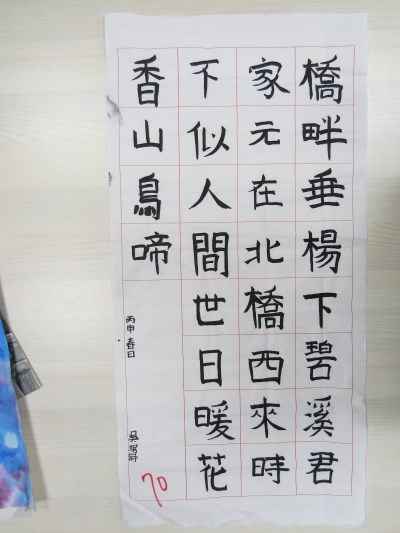 橋畔垂楊下碧溪君
家元在北橋西來時
不似人間世日暖花
香山鳥啼
丙申春日
吳
70